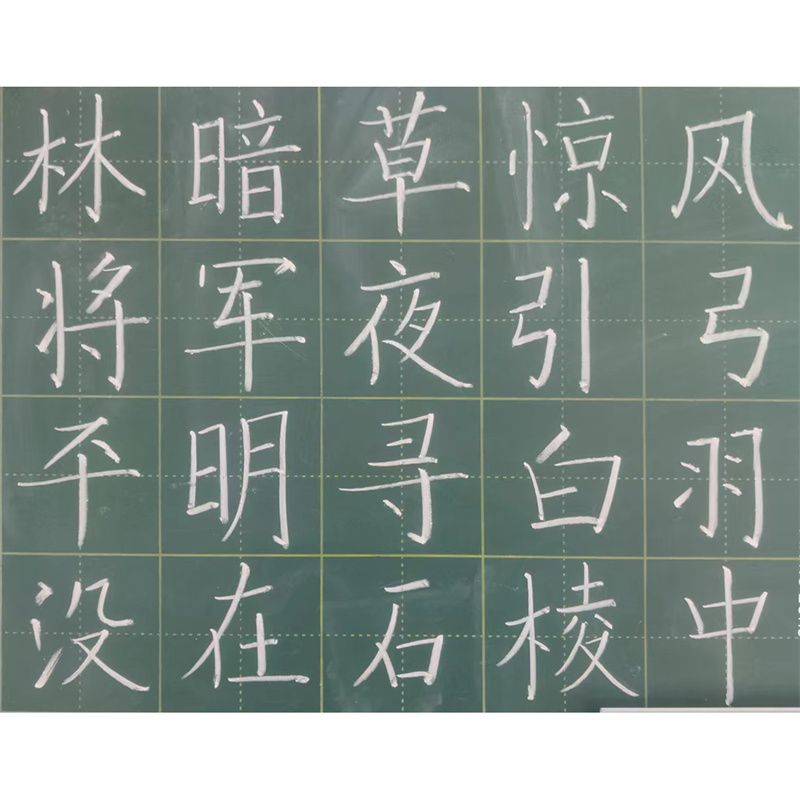 林暗草惊风
将军夜引弓
平明寻白羽
没在石棱中